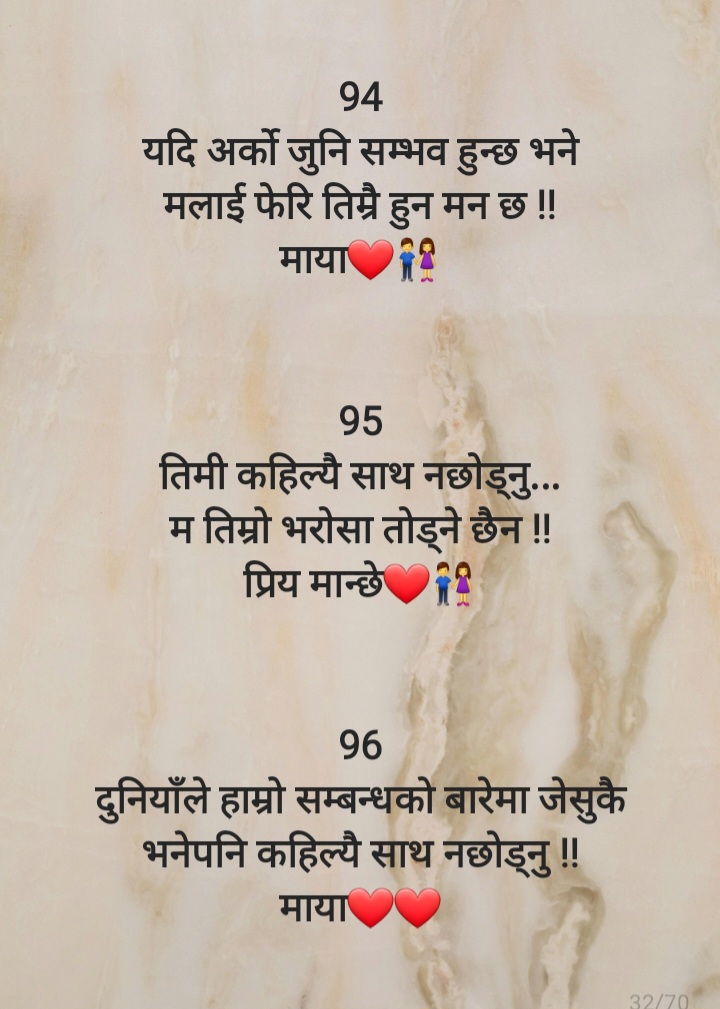 94
यदि अर्को जुनि सम्भव हुन्छ भने
मलाई फेरि तिम्रै हुन मन छ !!
माया❤️👫
95
तिमी कहिल्यै साथ नछोड्नु...
म तिम्रो भरोसा तोड्ने छैन !!
प्रिय मान्छे❤️👫
96
दुनियाँले हाम्रो सम्बन्धको बारेमा जेसुकै
भनेपनि कहिल्यै साथ नछोड्नु !!
माया❤️❤️
32/70